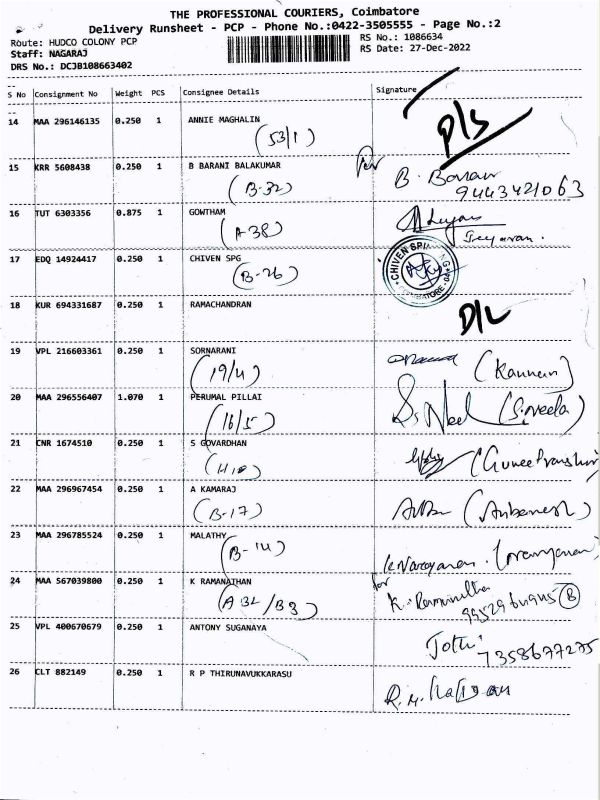 THE PROFESSIONAL COURIERS, Coimbatore
Delivery Runsheet - PCP - Phone No.:0422-3505555 - Page No.:2
Route: HUDCO COLONY PCP RS No.: 1086634
Staff: NAGARAJ RS Date: 27-Dec-2022
DRS No.: DCJB108663402
S No Consignment No Weight PCS Consignee Details Signature
14 MAA 296146135 0.250 1 ANNIE MAGHALIN
(53/1) P/S
15 KRR 5608438 0.250 1 B BARANI BALAKUMAR
(B-32) B.
9443421063
16 TUT 6303356 0.875 1 GOWTHAM
(A-38)
17 EDQ 14924417 0.250 1 CHIVEN SPG
(B-26) CHIVEN SPINNING
COIMBATORE
18 KUR 694331687 0.250 1 RAMACHANDRAN
D/L
19 VPL 216603361 0.250 1 SORNARANI
(19/4) (Kannan)
20 MAA 296556407 1.070 1 PERUMAL PILLAI
(16/5) (S.neela)
21 CNR 1674510 0.250 1 S GOVARDHAN
22 MAA 296967454 0.250 1 A KAMARAJ
(B-17)
23 MAA 296785524 0.250 1 MALATHY
(B-14)
24 MAA 567039800 0.250 1 K RAMANATHAN
for
(A 32/B3) K.
25 VPL 400670679 0.250 1 ANTONY SUGANAYA
Jothi
7358677275
26 CLT 882149 0.250 1 R P THIRUNAVUKKARASU